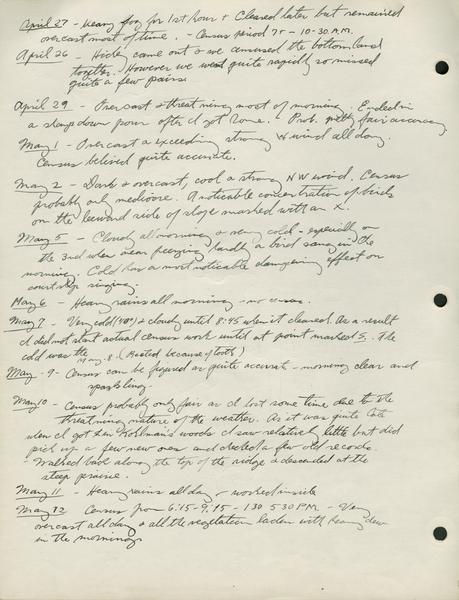 April 27 - Heavy fog for 1st hour + Cleared later but remained
overcast most of time. - Census period 7 - 10-30 A.M.
April 26 - Hickey came out + we censused the bottomland
together. However we went quite rapidly so missed
quite a few pairs.
April 29 - Overcast + threatening most of morning. Ended in
a steap down pour after I got home. Prob. pretty fair accuracy.
May 1 - Overcast + exceeding strong wind all day.
Census believed quite accurate.
May 2 - Dark + overcast, cool + strong NW wind. Census
probably only mediocre. A noticable concentration of birds
on the leeward side of slope marked with an X.
May 5 - Cloudy all morning + very cold - especially on
the 3rd when near freezing hardly a bird sang in the
morning. Cold has a most noticable dampening effect on
courtship singing.
May 6 - Heavy rains all morning - no census.
May 7 - Very cold (40°) + cloudy until 8:45 when it cleared. As a result
I did not start actual census work until at point marked S. The
cold was the
May 8 (Rested because of tooth)
May - 9 - Census can be figured as quite accurate - morning clear and
sparkling.
May 10 - Census probably only fair as I lost some time due to the
threatning nature of the weather. As it was quite late
when I got to Kohlman's woods I saw relatively little but did
pick up a few new ones and checked a few old records.
Walked back along the top of the ridge + descended at the
steep prairie.
May 11 - Heavy rains all day - worked inside
May 12 Census from 6:15 - 9:15 - 1 30 5 30 P.M. - Very
overcast all day + all the vegetation laden with heavy dew
in the mornings